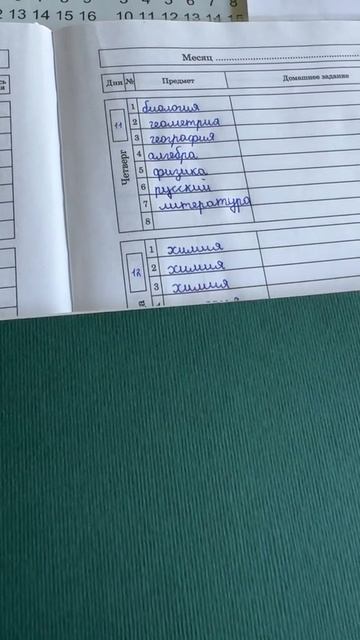 12 13 14 15 16 10 11 12 13 14 15
Месяц
Дни № Предмет Домашнее задание
11 Четверг
1 биология
2 геометрия
3 география
4 алгебра
5 физика
6 русский
7 литература
8
12
1 химия
2 химия
3 химия